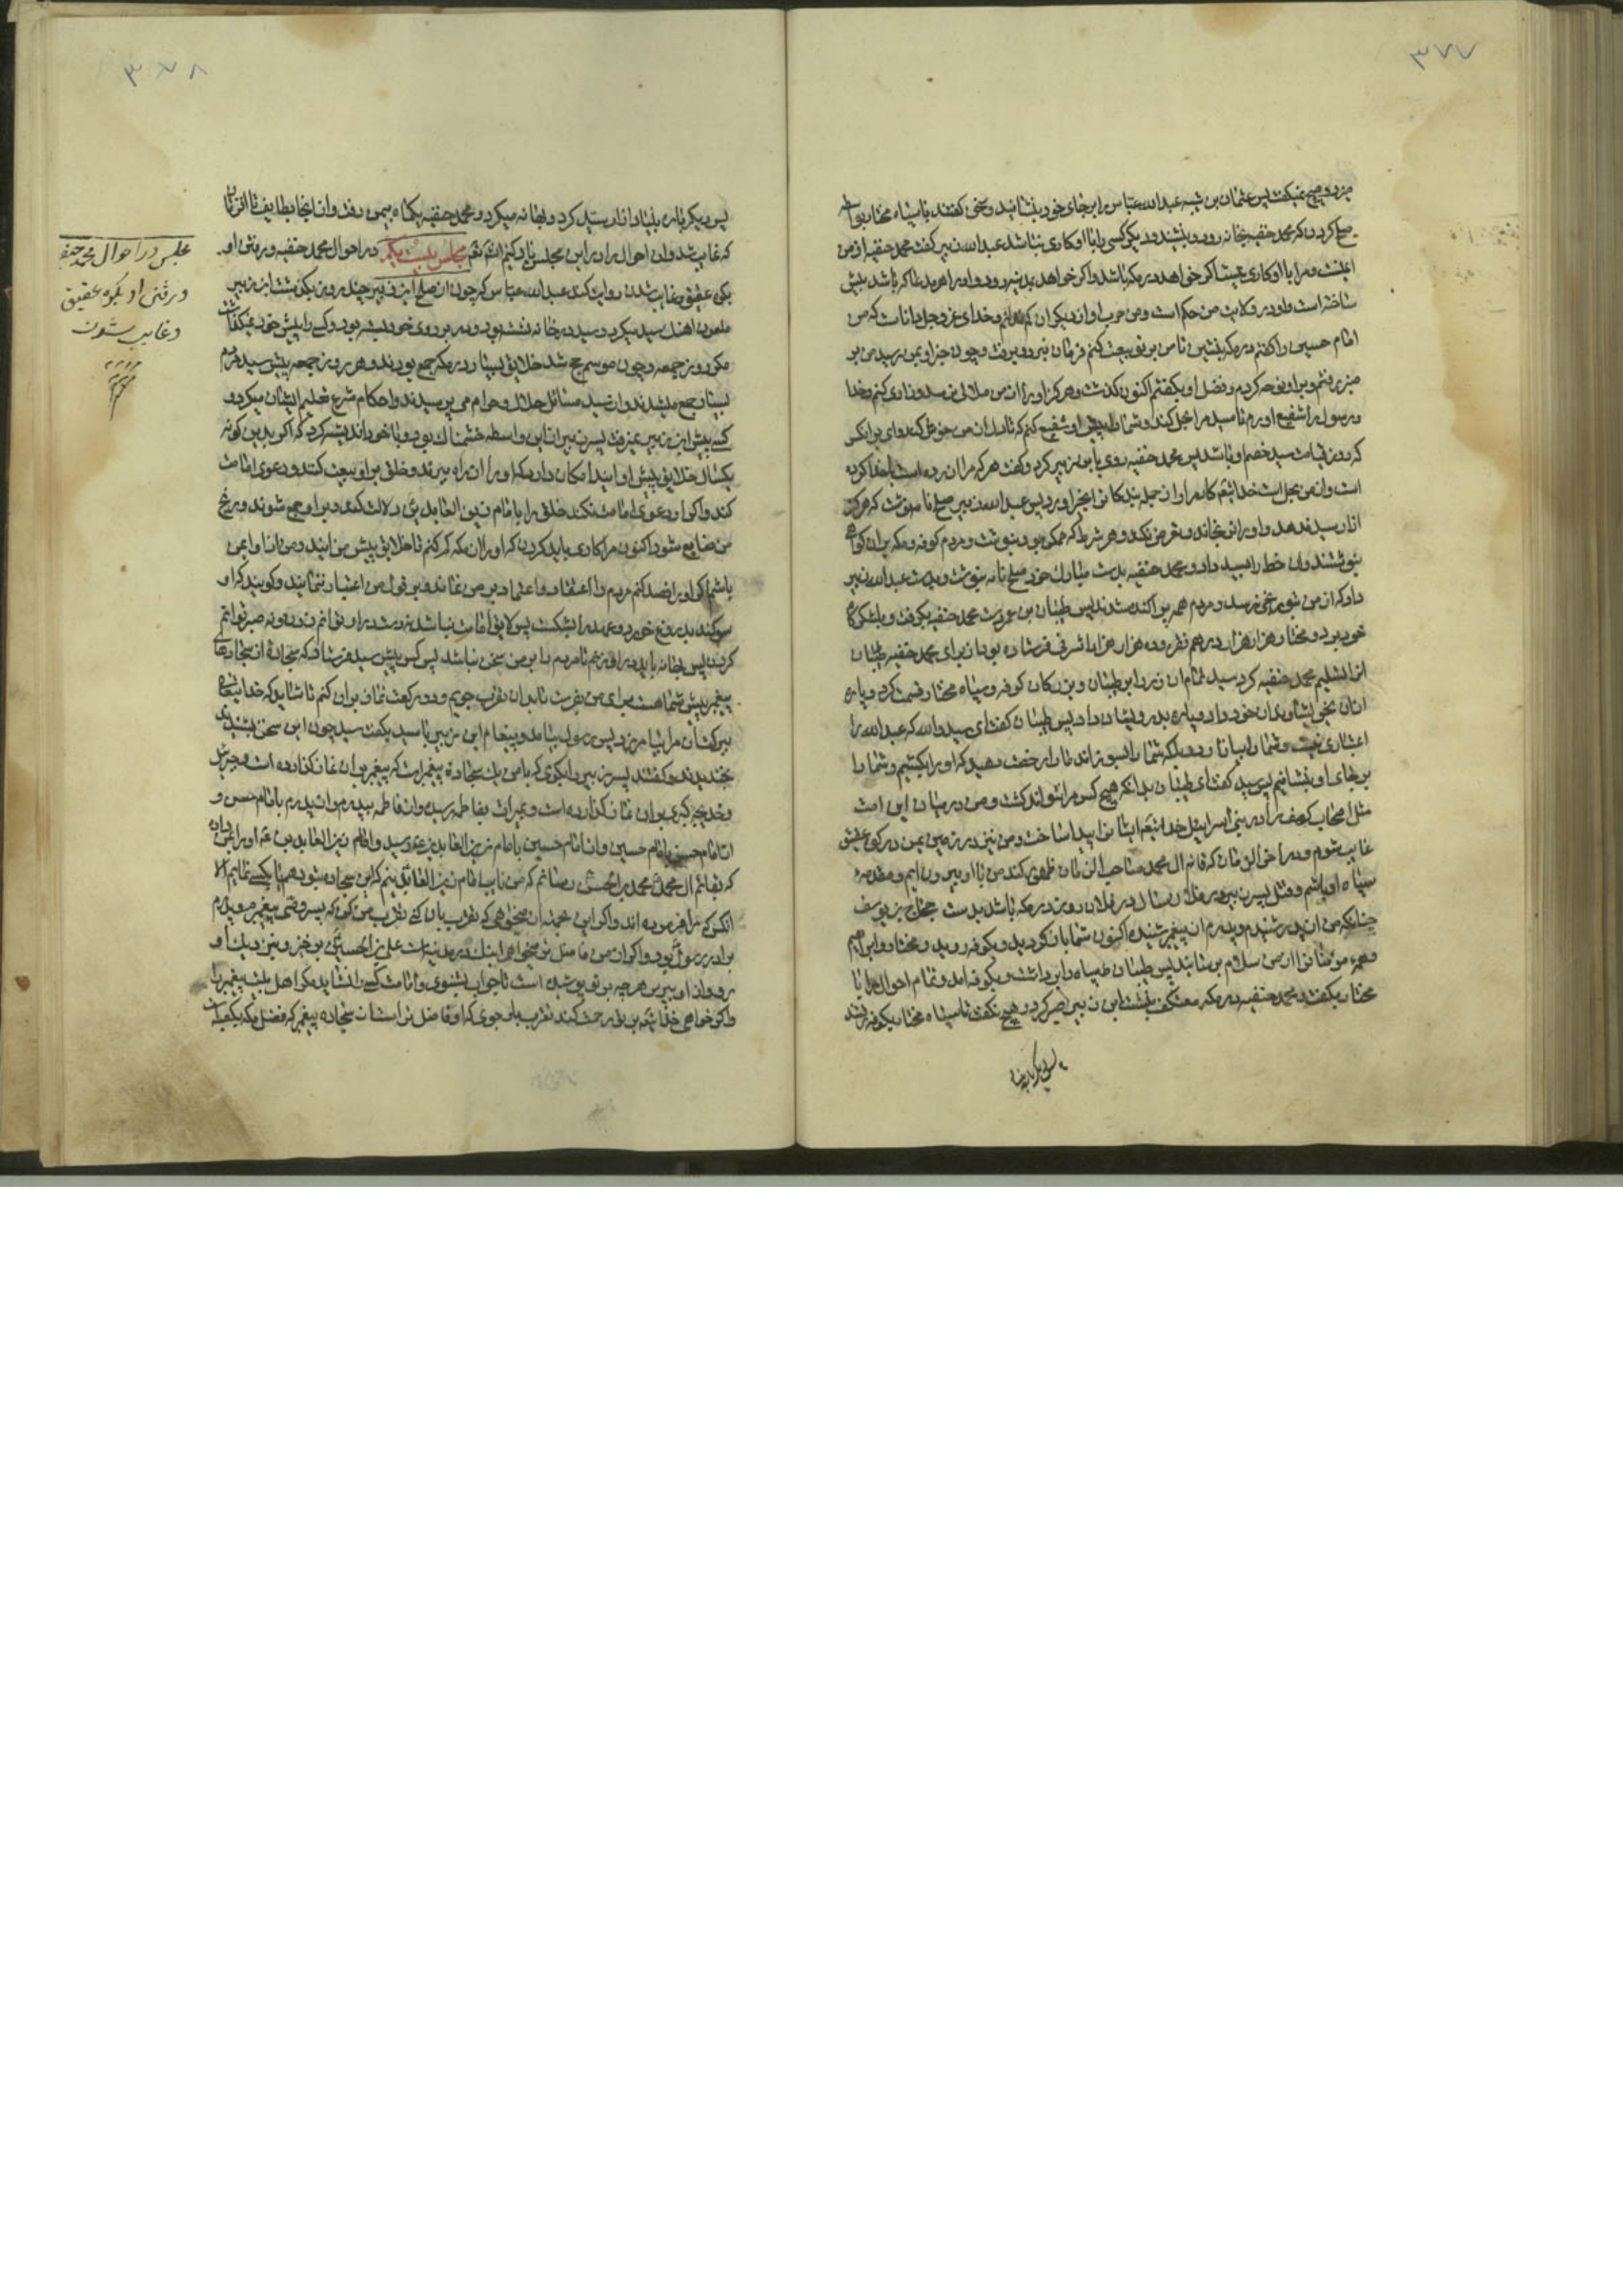 ۳۷۷
میزد و هیچ نمیکفت پس عثمان بن شیبه عبدالله عباس را بر جای خود بنشانید و سخن کفتند با سپاه مختار
صلح کردن که محمد حنفیه بخانه رود و بنشیند و دیکر کسی را با او کاری نباشد عبدالله زبیر کفت محمد حنفیه از من
ایمنست و مرا با او کاری نیست اکر خواهد در مکه باشد و اکر خواهد بمدینه رود و او را هر مدعا که باشد
ساخته است و او در ولایت من حکم است و من او از دیکران و خدای عز و جل داناست که من
امام حسین را کفتم در مکه بنشین تا من بر تو بیعت کنم فرمان نبرد و برفت و چون خبر او بمن رسید من بر
منبر رفتم و بر او نوحه کردم و فضل او بکفتم اکنون کذشت و هرکز او را از من ملالی نرسد و خدا
و رسول را شفیع آورم تا سید مرا بحل کند و شما را پیش او شفیع کنم که تا دل از من خوش کند وای بر آنکس
که روز قیامت سید خصم او باشد پس محمد حنفیه روی بابن زبیر کرد و کفت هر که مرا آزرده است با خدا کرده
است و از من بحل است خدایتعم کاه مرا و از جمله بندکان پس عبدالله زبیر صلح نامه نوشت که هرکز
آزار سید ندهد و او را نرنجاند و تعرض نکند و هر شرط که ممکن بود بنوشت و مردم کوفه و مکه بر آن کواهی
نبوشتند و آن خط را بسید داد و محمد حنفیه بدست مبارک خود صلح نامه بنوشت و بدست عبدالله زبیر
داد که از من بتو رنجی نرسد و مردم همه پراکنده شدند پس طبیان بن عمر دست محمد حنفیه بکرفت و بلشکرکاه
خود برد و مختار هزار هزار درهم نقره و ده هزار هزار اشرفی فرستاده بود از برای محمد حنفیه طبیان
آنرا تسلیم محمد حنفیه کرد سید تمام آن زر را بر طبیان و بزرکان کوفه و سپاه مختار قسمت کرد و پاره
از آن بخویشاوندان خود داد و پاره بدرویشان داد پس طبیان کفت ای سید والله که عبدالله را
اعتباری نیست و شما را بیازارد بلکه شما را بسوزاند ما را رخصت دهید که او را بکشیم و شما را
بر جای او بنشانیم پس سید کفت ای طبیان بدانکه هیچ کس مرا نتواند کشت و من در میان این امت
مثل اصحاب کهفم را در بنی اسرائیل خدایتعم ایشانرا پیدا ساخت و من نیز در زمین یمن در کوه عقیق
غایب شوم و در آخر الزمان که قائم آل محمد صاحب الزمان ظهور کند من با او بیرون آیم و مقدمه
سپاه او باشم و قتل پسر زبیر در فلان سال در فلان روز در مکه باشد بدست حجاج بن یوسف
چنانکه من از پدر شنیدم و پدرم از پیغمبر شنیده اکنون شما باز کردید و بکوفه روید و مختار و ابراهیم
و همه مومنانرا از من سلام برسانید پس طبیان سپاه را برداشت و بکوفه آمد و تمام احوال را با
مختار بکفت و محمد حنفیه در مکه معتکف بنشست ابن زبیر صبر کرد و هیچ نکفت تا سپاه مختار بکوفه رفتند
پس دیکر باره بنیاد
۳۷۸
پس دیکر باره بنیاد آزار سید کرد و بهانه میکرد و محمد حنفیه بکناه بیمن رفت و از آنجا بطایف تا آنزمان
که غایب شد و آن احوال را در این مجلس یاد کنیم انشاءالله تعم مجلس بیست یکم در احوال محمد حنفیه و رفتن او
بکوه عقیق و غایب شدن روایت کند عبدالله عباس که چون از صلح ابن زبیر چند روز بکذشت ابن زبیر
ملعون آهنک سید میکرد و سید در خانه نشسته بود و در بر روی خود بسته بود و کسی را پیش خود نمیکذاشت
مکر روز جمعه و چون موسم حج شد خلایق بسیار در مکه جمع بودند و هر روز جمعه پیش سید مردم
بسیار جمع میشدند و از سید مسائل حلال و حرام می پرسیدند و احکام شرع تعلیم ایشان میکرد و
کسی پیش ابن زبیر نمیرفت پسر زبیر از این واسطه خشمناک بود و با خود اندیشه کرد که اکر بدین کونه
یکسال خلایق پیش او آیند امکان دارد که او را از راه ببرند و خلق بر او بیعت کنند و دعوی امامت
کند و اکر او دعوی امامت نکند خلق را بامام زین العابدین دلالت کند و بر او جمع شوند و رنج
من ضایع شود اکنون مرا کاری باید کردن که او را از مکه کم کنم تا خلایق پیش من آیند و من از او ایمن
باشم اکر او را قصد کنم مردم را اعتقاد و اعتماد بر من نماند و بر قول من اعتبار ننمایند و کویند که او
سوکند بدروغ خورد و عهد را بشکست پس لایق امامت نباشد در او نتوانم زدن و نه صبر توانم
کردن پس بهانه باید بر او نهم تا مردم را بر من سخن نباشد پس کس پیش سید فرستاد که سجاده از سجادهای
پیغمبر پیش شما هست برای من بفرست تا بدان تقرب جویم و دو رکعت نماز بر آن کنم تا شاید که خدایتعالی
ببرکت آن مرا بیامرزد پس رسول بیامد و پیغام ابن زبیر با سید بکفت سید چون این سخن بشنید
بخندید و کفتند پسر زبیر را بکوی که با من یک سجاده پیغمبر است که پیغمبر بر آن نماز کذارده است و جبرئیل
و خدیجه کبری بر آن نماز کذارده است و بمیراث بفاطمه رسید و از فاطمه بپدرم و از پدرم بامام حسن و
از امام حسن بامام حسین و از امام حسین بامام زین العابدین رسید و امام زین العابدین
که بقائم آل محمد محمد بن الحسن رسانم که من نایب امام زین العابدینم که این سجاده بتو دهم یا بکسی نمایم الا
آنکس که مرا فرموده اند و اکر این میخواهی که تقرب بآن کنی تقرب بمن کن که پسر وصی پیغمبرم و پدرم
برادر رسول بود و اکر از من فاضل تر میخواهی اینک در مدینه است علی بن الحسین برخیز و بنزدیک او
رو و از او بپرس هر چه بر تو پوشیده است تا جواب بشنوی و امامت کسی را نشاید مکر اهل بیت پیغمبر را
و اکر خواهی خدایتعم بر تو رحمت کند تقرب باو جوی که او فاضل تر است از سجاده پیغمبر
مجلس در احوال محمد حنفیه
و رفتن او بکوه عقیق
و غایب شدن